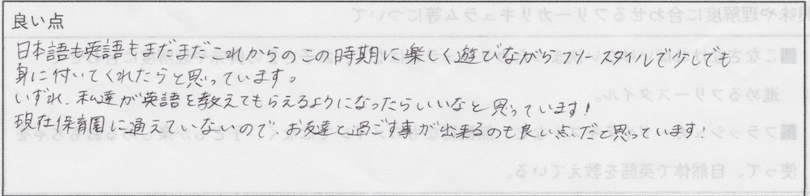 良い点
日本語も英語もまだまだこれからのこの時期に楽しく遊びながらフリースタイルで少しでも
身に付いてくれたらと思っています。
いずれ、私達が英語を教えてもらえるようになったらいいなと思っています!
現在保育園に通えていないので、お友達と過ごす事が出来るのも良い点だと思っています!